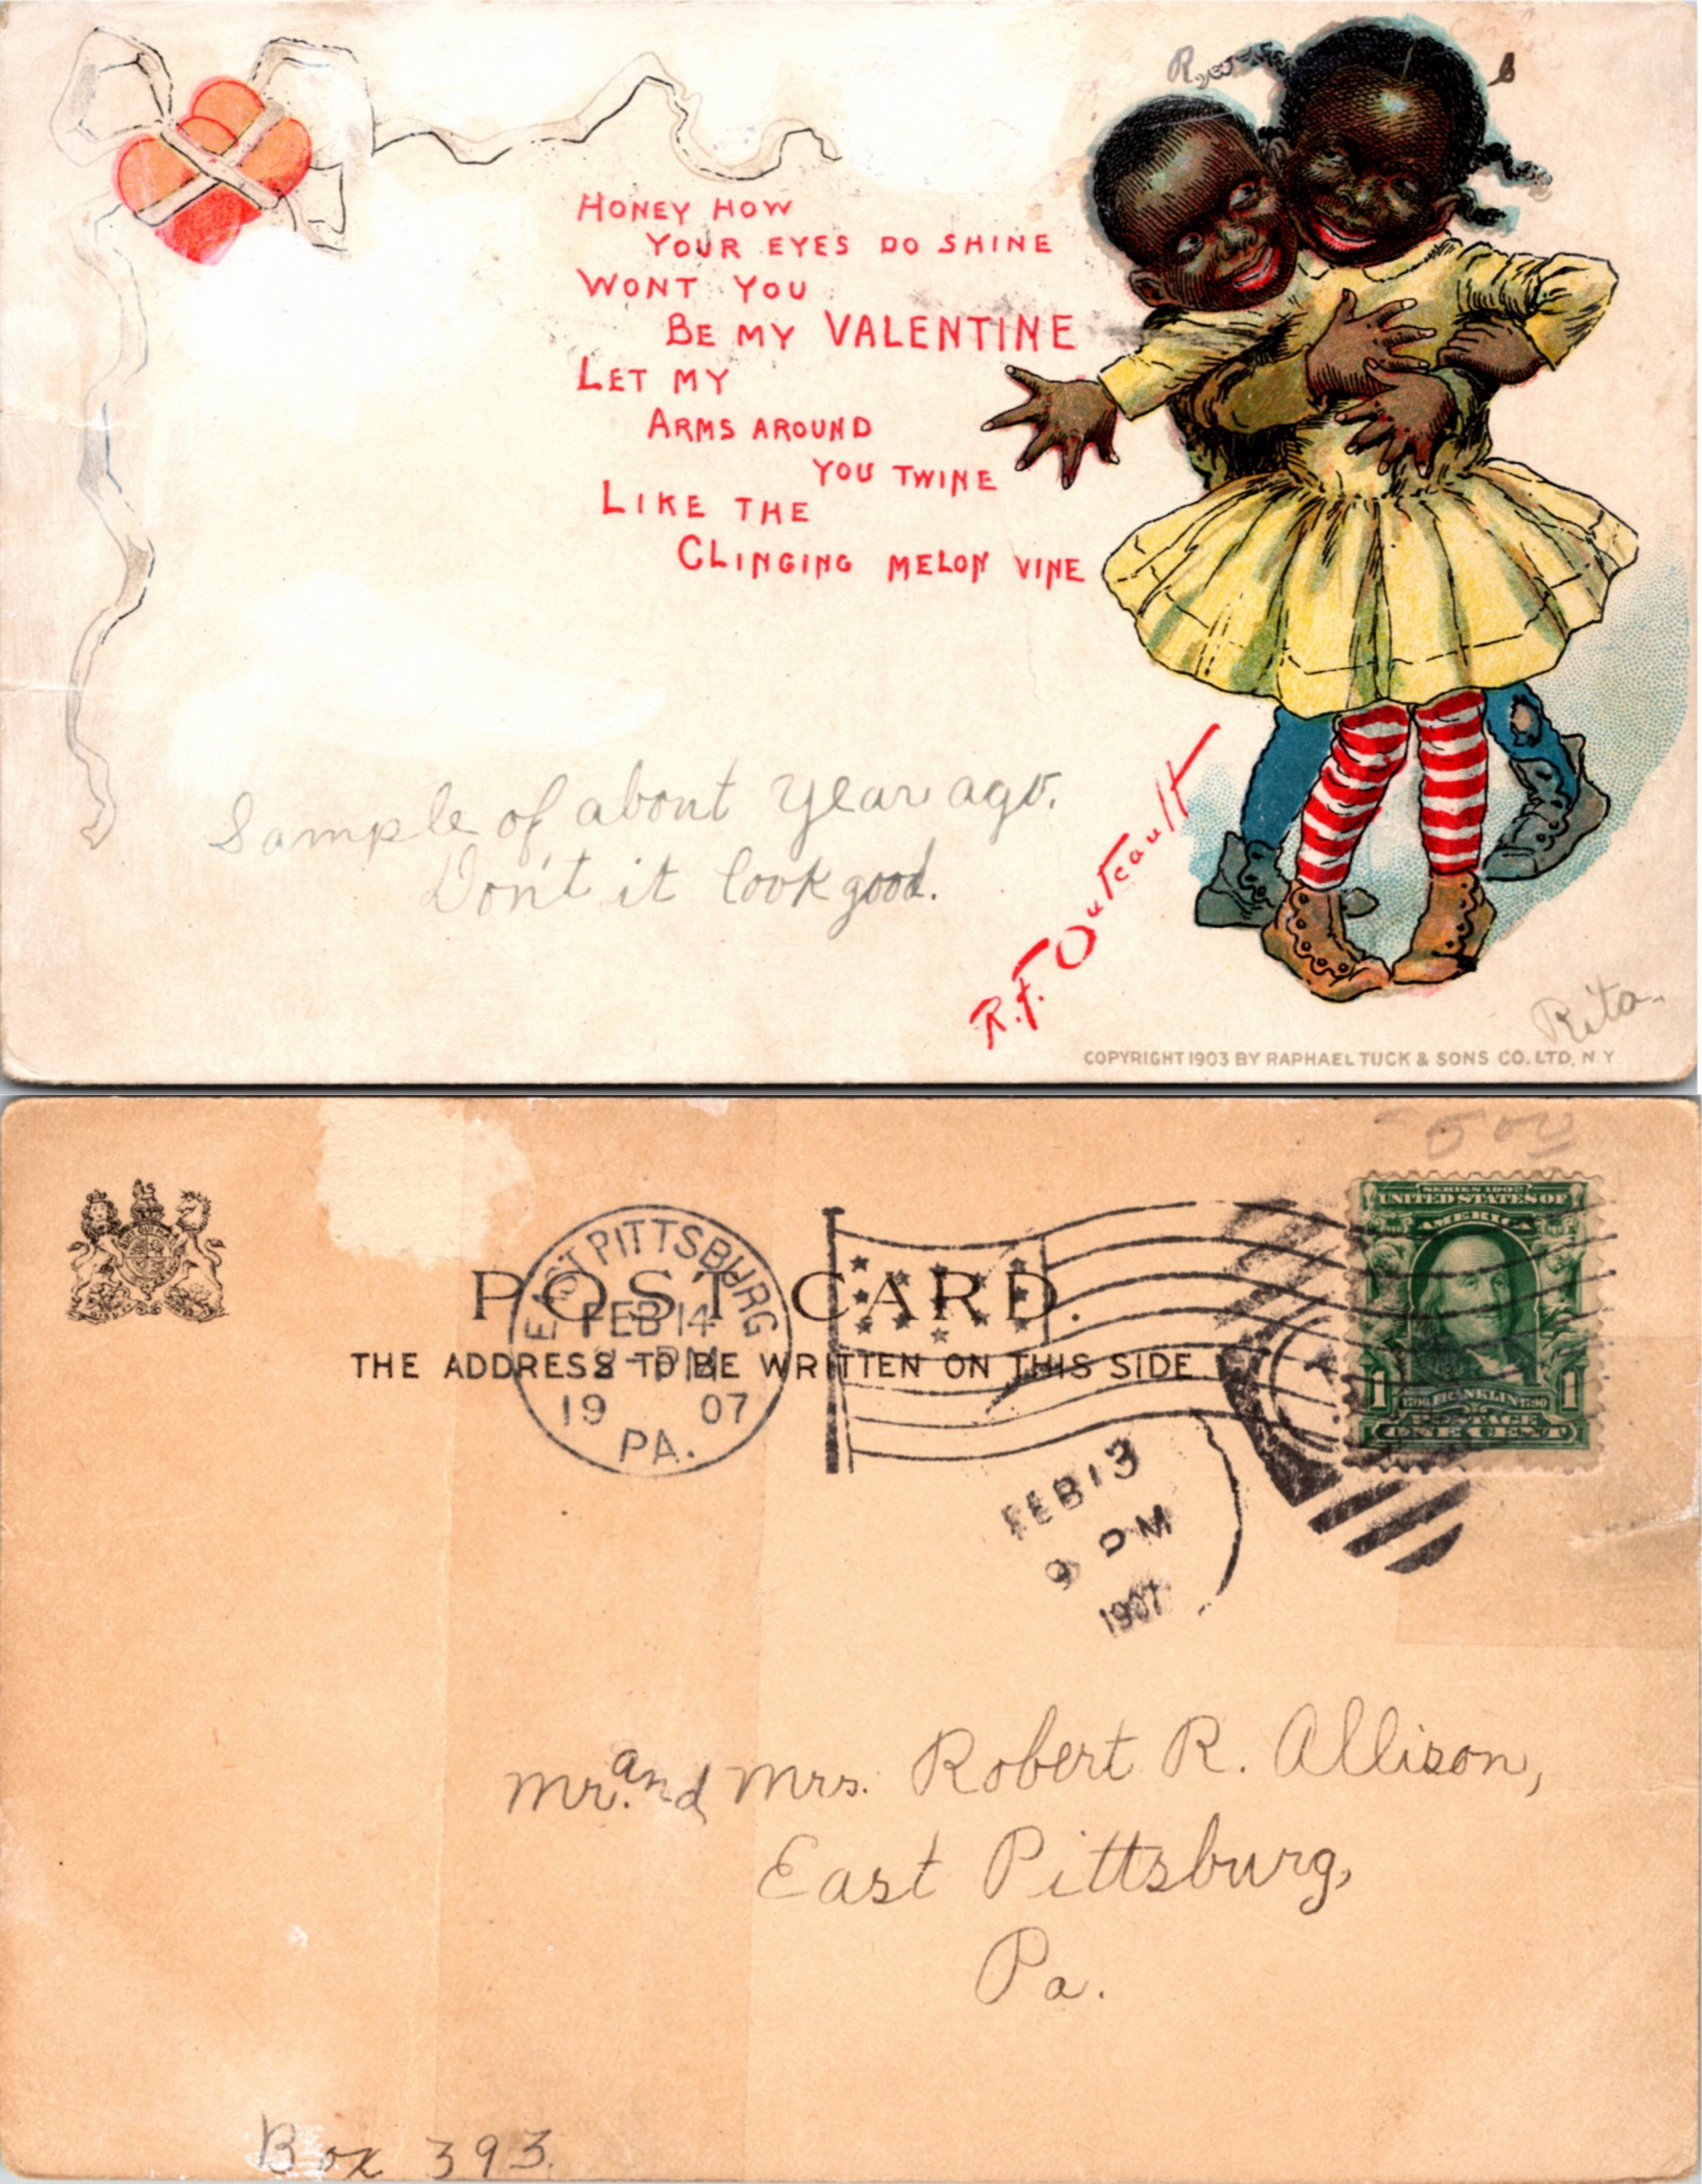 HONEY HOW
YOUR EYES DO SHINE
WONT YOU
BE MY VALENTINE
LET MY
ARMS AROUND
YOU TWINE
LIKE THE
CLINGING MELON VINE
Sample of about year ago.
Don't it look good.
R.F. Outcault
Rita.
COPYRIGHT 1903 BY RAPHAEL TUCK & SONS CO. LTD, N.Y
500
SERIES 1902
UNITED STATES OF
AMERICA
EAST PITTSBURG
FEB 14
PM
19 07
PA.
POST CARD.
THE ADDRESS TO BE WRITTEN ON THIS SIDE.
1 FRANKLIN 1
1706 1790
POSTAGE
ONE CENT
FEB 13
9 PM
1907
Mr. and Mrs. Robert R. Allison,
East Pittsburg,
Pa.
Box 393.